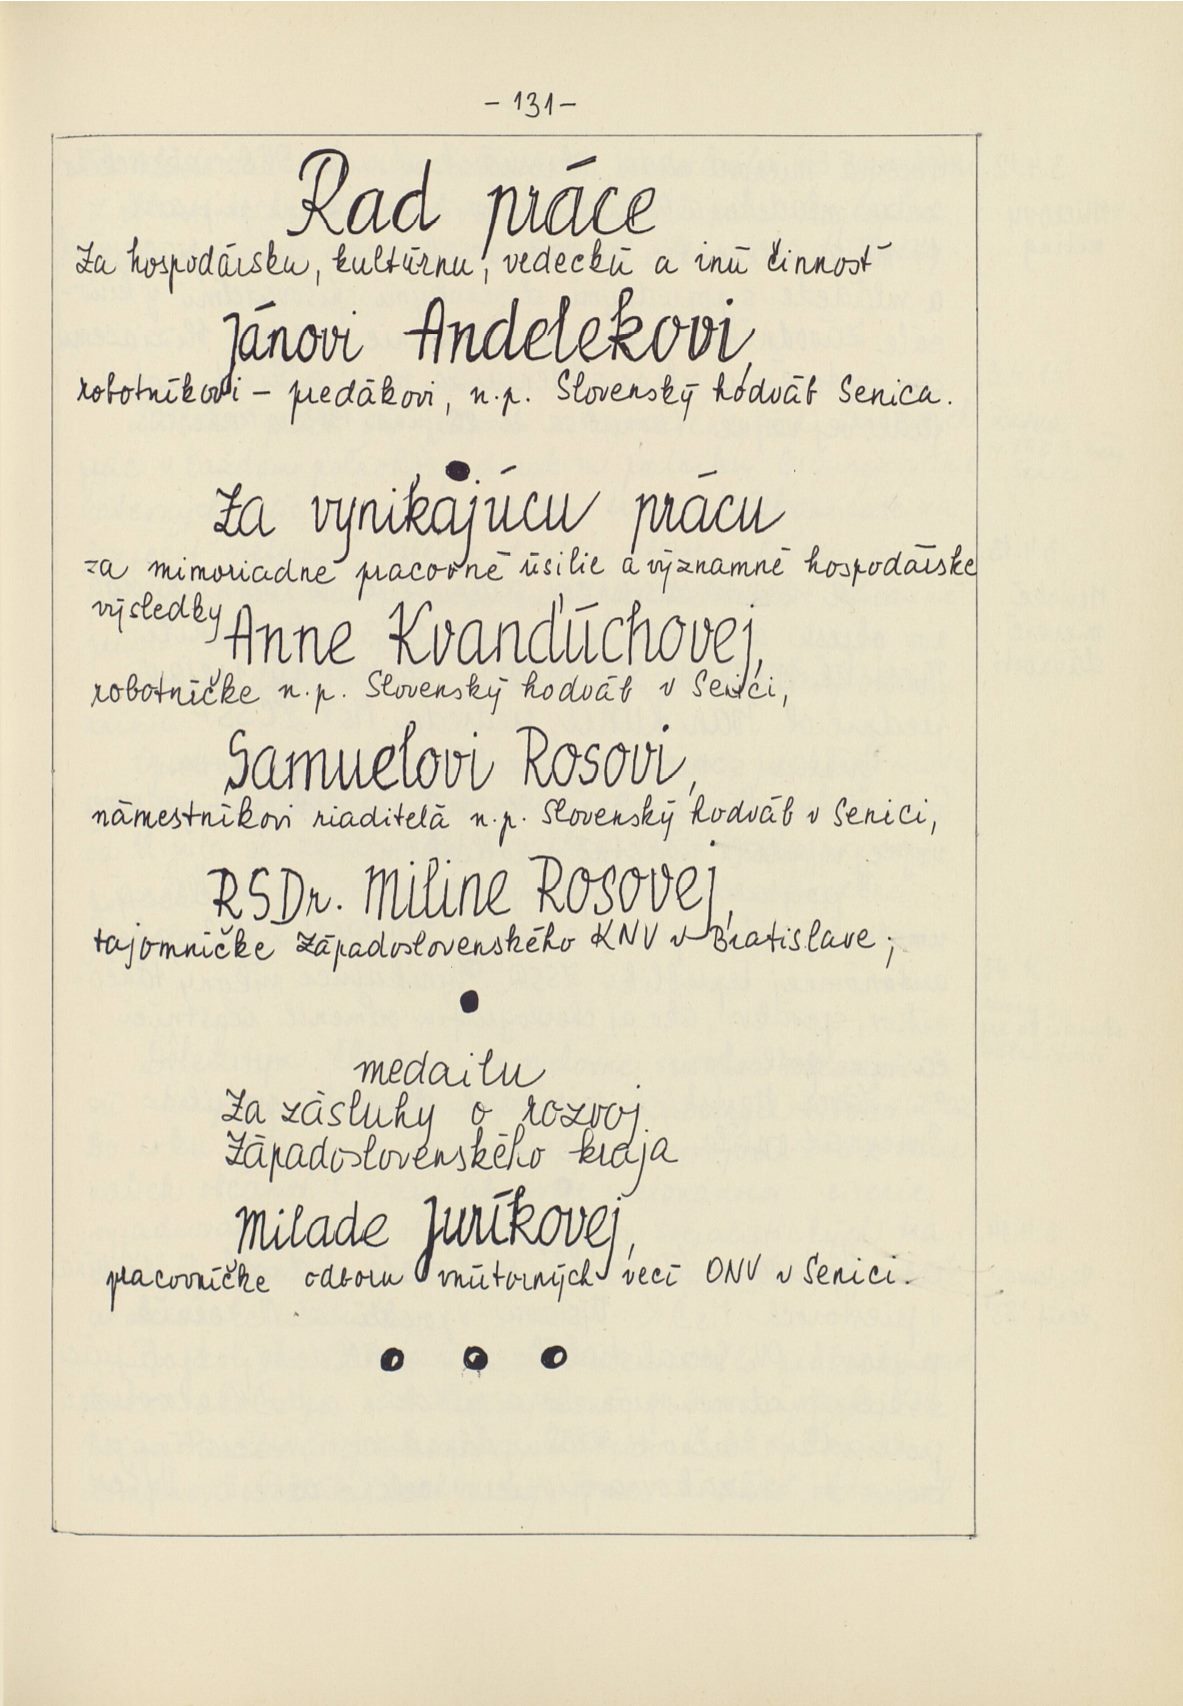 - 131 -
Rad práce
Za hospodársku, kultúrnu, vedeckú a inú činnosť
Jánovi Andelekovi,
robotníkovi - predákovi, n.p. Slovenský hodváb Senica.
Za vynikajúcu prácu
za mimoriadne pracovné úsilie a významné hospodárske
výsledky
Anne Kvanďúchovej,
robotníčke n.p. Slovenský hodváb v Senici,
Samuelovi Rosovi,
námestníkovi riaditeľa n.p. Slovenský hodváb v Senici,
RSDr. Miline Rosovej,
tajomníčke Západoslovenského KNV v Bratislave;
medailu
Za zásluhy o rozvoj
Západoslovenského kraja
Milade Juríkovej,
pracovníčke odboru vnútorných vecí ONV v Senici.